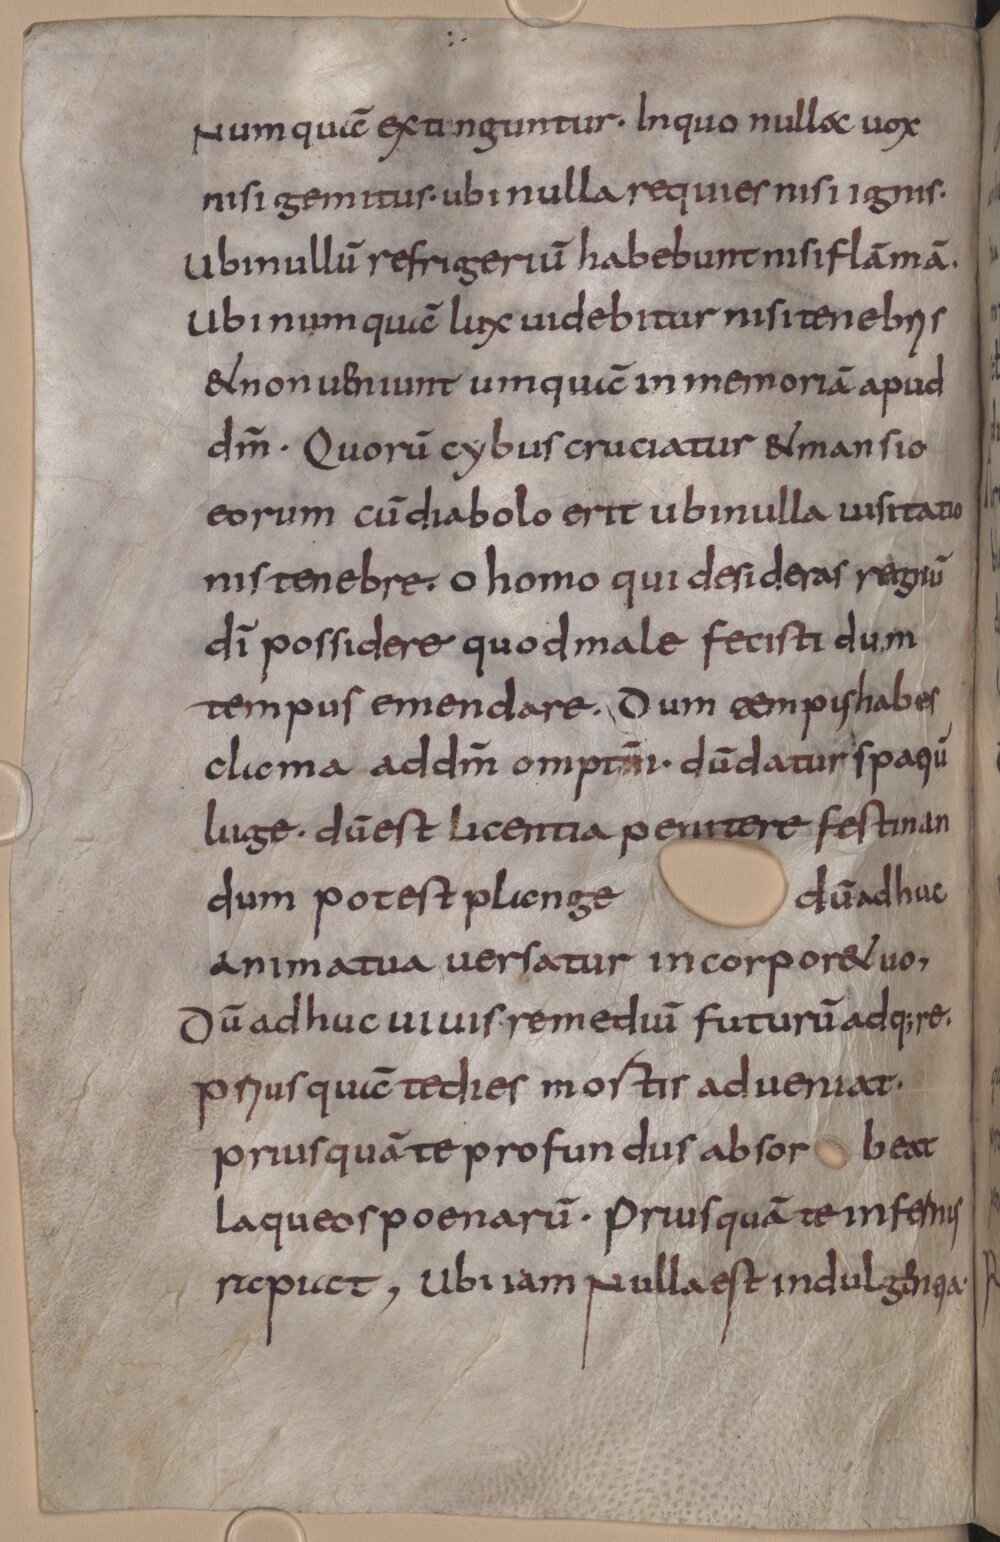 Numquā extinguntur. Inquo nulla uox
nisi gemitus. ubi nulla requies nisi ignis.
Ubi nullū refrigeriū habebunt nisi flāmā.
Ubi numquā lux uidebitur nisi tenebris
& non ueniunt umquā in memoriā apud
dm̄. Quorū cybus cruciatur & mansio
eorum cū diabolo erit ubi nulla uisitatio
nis tenebre. O homo qui desideras regnū
dī possidere quod male fecisti dum
tempus emendare. Dum tempus habes
clama ad dm̄ omptm̄. dū datur spaciū
luge. dū est licentia penitere festinan
dum potest plange dū adhuc
anima tua versatur in corpore tuo,
Dū adhuc uiuis remediū futurū adq;re.
Priusquā te dies mortis adueniat.
priusquā te profundus absor beat
laqueos poenarū. Priusquā te infernus
rapiat, Ubi iam Nulla est indulgencia.